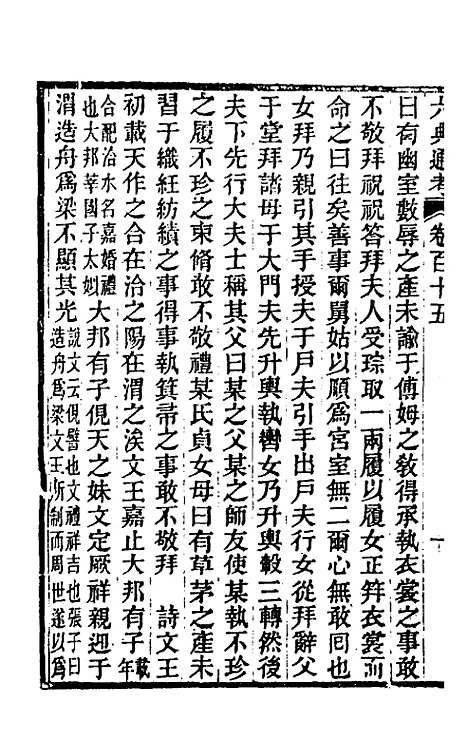 六典通考　卷百十五　一
曰有幽室數辱之產未諭于傅姆之敎得承執衣裳之事敢
不敬拜祝祝答拜夫人受琮取一兩履以履女正筓衣裳而
命之曰往矣善事爾舅姑以順爲宮室無二爾心無敢囘也
女拜乃親引其手授夫于戶夫引手出戶夫行女從拜辭父
于堂拜諸母于大門夫先升輿執轡女乃升輿轂三轉然後
夫下先行大夫士稱其父曰某之父某之師友使某執不珍
之履不珍之束脩敢不敬禮某氏貞女母曰有草茅之產未
習于織紝紡績之事得事執箕帚之事敢不敬拜　詩文王
初載天作之合在洽之陽在渭之涘文王嘉止大邦有子載年
合配洽水名嘉婚禮也大邦莘國子太姒大邦有子俔天之妹文定厥祥親迎于
渭造舟爲梁不顯其光說文云俔譬也文禮祥吉也張子曰造舟爲梁文王所制而周世遂以爲